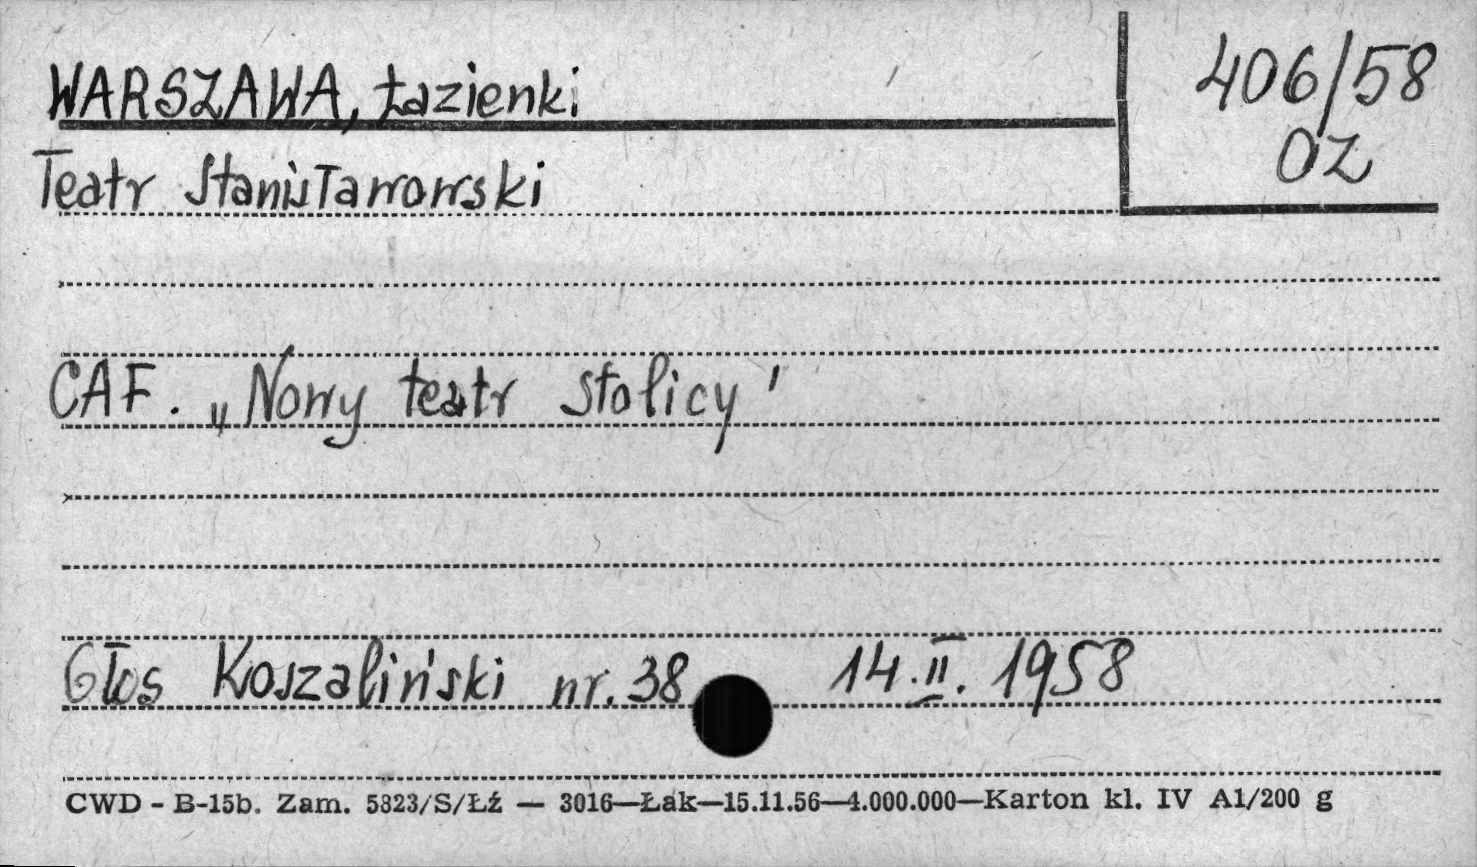 WARSZAWA, Łazienki
406/58
OZ
Teatr Stanisławowski
CAF. „Nowy teatr stolicy"
Głos Koszaliński nr. 38 14.II.1958
CWD - B-15b. Zam. 5823/S/Łź — 3016—Łak—15.11.56—4.000.000—Karton kl. IV A1/200 g